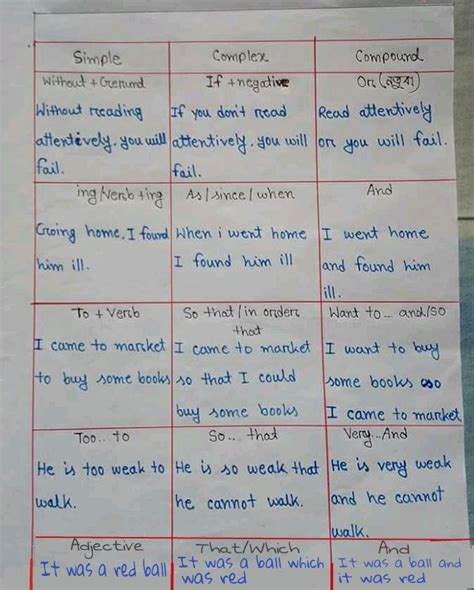 Simple Complex Compound
Without + Gerund If + negative Or (নতুবা)
Without reading If you don't read Read attentively
attentively, you will attentively, you will or you will fail.
fail. fail.
ing/Verb + ing As/since/when And
Going home, I found When i went home I went home
him ill. I found him ill and found him
ill.
To + Verb So that/in order Want to... and/so
that
I came to market I came to market I want to buy
to buy some books so that I could some books so
buy some books I came to market
Too... to So... that Very...And
He is too weak to He is so weak that He is very weak
walk. he cannot walk. and he cannot
walk.
Adjective That/Which And
It was a red ball It was a ball which It was a ball and
was red it was red